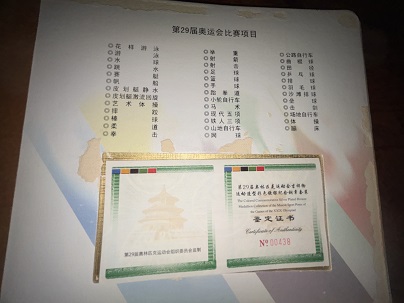 第29届奥运会比赛项目
花样游泳
游泳
水球
跳水
赛艇
帆船
皮划艇静水
皮划艇激流回旋
艺术体操
摔跤
棒球
柔道
拳击
举重
射击
射箭
足球
篮球
手球
跆拳道
小轮自行车
马术
现代五项
铁人三项
山地自行车
网球
公路自行车
曲棍球
田径
乒乓球
排球
羽毛球
沙滩排球
垒球
击剑
场地自行车
体操
蹦床
第29届奥林匹克运动会组织委员会监制
第29届奥林匹克运动会吉祥物
The Colored Commemorative Silver Plated Bronze
Medallion Collection of the Mascot Sport Form of
the Games of the XXIX Olympiad
鉴定证书
Certificate of Authenticity
No 00438